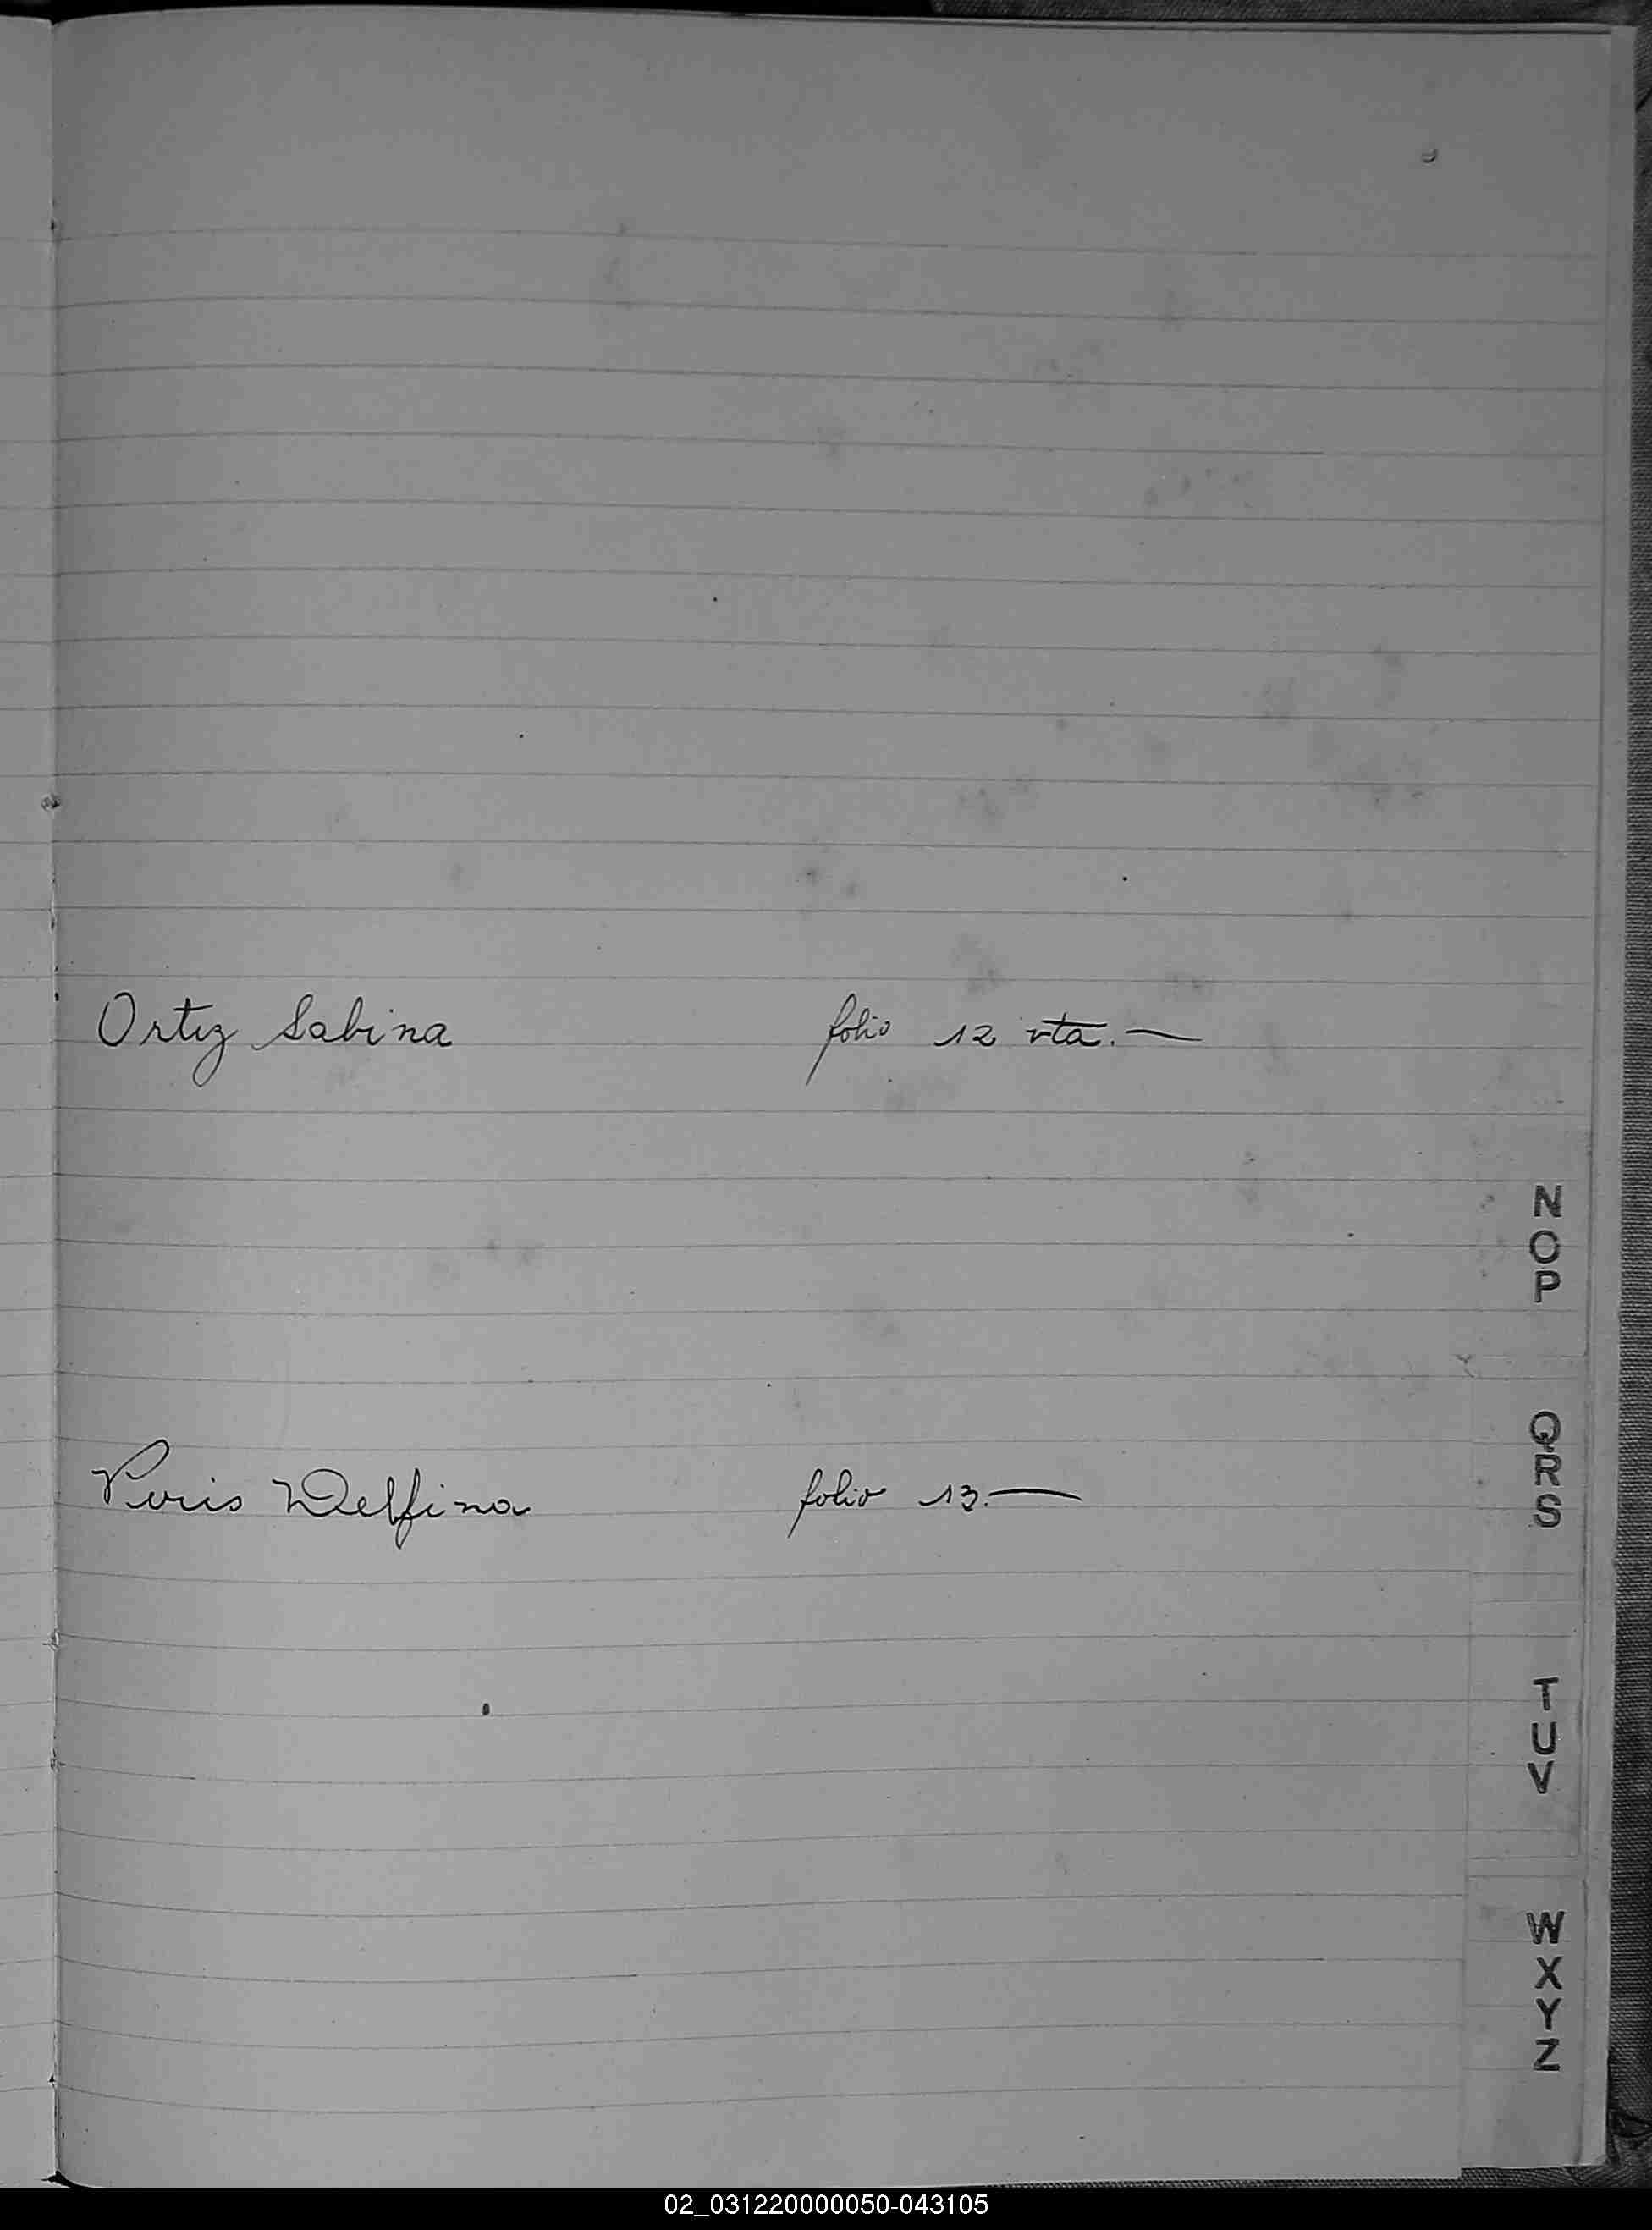 Ortiz Sabina folio 12 vta.—
N
O
P
Q
R
S
Peris Delfina folio 13.—
T
U
V
W
X
Y
Z
02_031220000050-043105